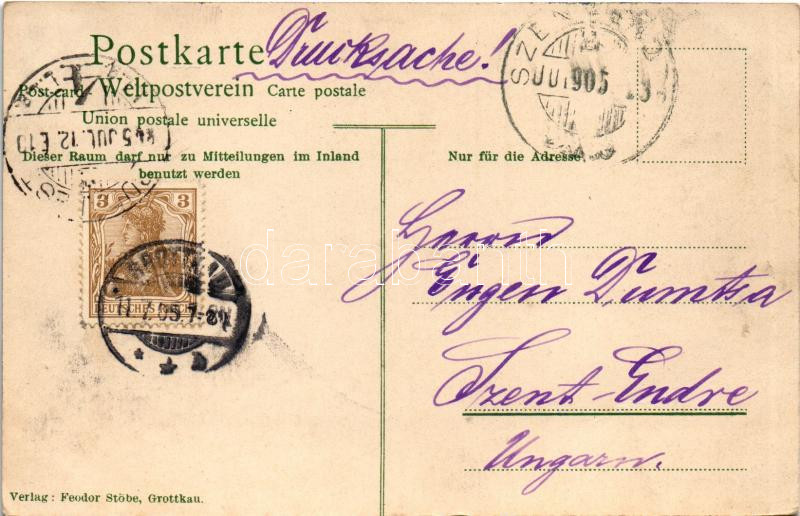 Postkarte Drucksache!
Post-card Weltpostverein Carte postale
Union postale universelle
Dieser Raum darf nur zu Mitteilungen im Inland
benutzt werden
Nur für die Adresse.
905 JUL 12
JUL 905
3 3
DEUTSCHES REICH
11.7.05.7-8
Herrn
Eugen Dumtsa
Szent-Endre
Ungarn.
darabanth
Verlag: Feodor Stöbe, Grottkau.